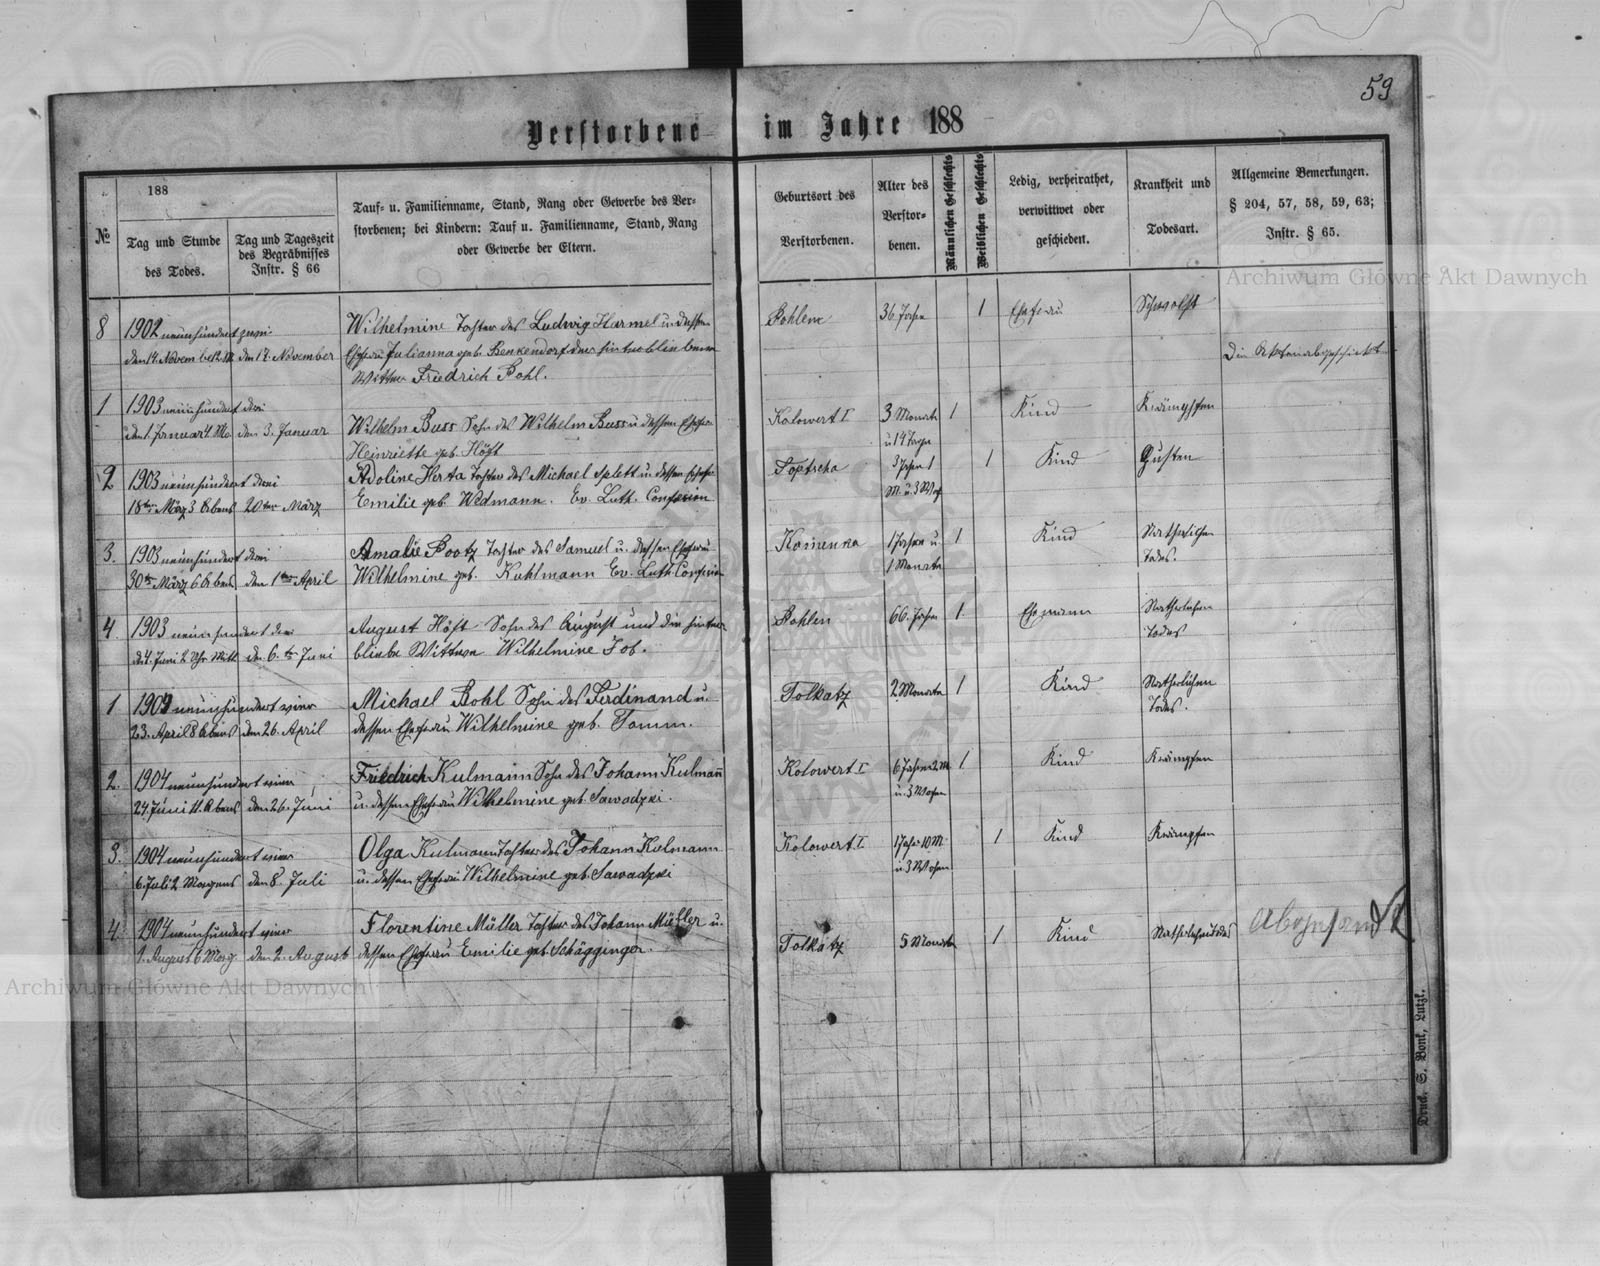 59
Verstorbene im Jahre 188
№
188
Tag und Stunde
des Todes.
Tag und Tageszeit
des Begräbnisses
Instr. § 66
Tauf- u. Familienname, Stand, Rang oder Gewerbe des Ver-
storbenen; bei Kindern: Tauf u. Familienname, Stand, Rang
oder Gewerbe der Eltern.
Geburtsort des
Verstorbenen.
Alter des
Verstor-
benen.
Männlichen Geschlechts
Weiblichen Geschlechts
Ledig, verheirathet,
verwittwet oder
geschieden.
Krankheit und
Todesart.
Allgemeine Bemerkungen.
§ 204, 57, 58, 59, 63;
Instr. § 65.
Archiwum Główne Akt Dawnych
8 1902 neunhundert zwei
den 17. November
Wilhelmine Tochter des Ludwig Harmel u. dessen
Ehefrau Julianna geb. Benkendorf der hinterblieben
Wittwer Friedrich Pohl.
Pohlen 36 Jahre 1 Ehefrau
1 1903 neunhundert drei
den 1. Januar 4 Mo. den 3. Januar
Wilhelm Buss Sohn des Wilhelm Buss u. dessen Ehefrau
Heinriette geb. Höft
Kolowert I 3 Monate 1 Kind Krämpfen
u 14 Tage
2 1903 neunhundert drei
18ten März 3 Abens 20ten März
Adoline Herta Tochter des Michael Splett u. dessen Ehefrau
Emilie geb. Widmann. Ev. Luth. Confesion
Toptscha 3 Jahre 1 1 Kind Husten
M. u. 3 Wo
3. 1903 neunhundert drei
30ten März 6 Abens den 1ten April
Amalie Pootz Tochter des Samuel u. dessen Ehefrau
Wilhelmine geb. Kuhlmann Ev. Luth. Confesion
Kamenka 1 Jahre u. 1 Kind Natherlichen
1 Monate Todes.
4. 1903 neunhundert drei
d. 4. Juni 2 Uhr Mitt den 6.ten Juni
August Höft Sohn des August und die hinter-
bliebe Wittwe Wilhelmine Job.
Pohlen 66. Jahre 1 Ehemann Natherlichen
Todes
1 1904 neunhundert vier
23. April 8 Abens den 26. April
Michael Pohl Sohn des Ferdinand u.
dessen Ehefrau Wilhelmine geb. Tomm.
Tolkatz 2 Monate 1 Kind Natherlichen
Todes.
2. 1904 neunhundert vier
24. Juni 11. Abens den 26. Juni
Friedrich Kulmann Sohn des Johann Kulmann
u. dessen Ehefrau Wilhelmine geb. Sawadzki.
Kolowert I 6 Jahre 2 M. 1 Kind Krämpfen
u. 3 Wochen
3. 1904 neunhundert vier
6. Juli 2 Morgens den 8. Juli
Olga Kulmann Tochter des Johann Kulmann
u. dessen Ehefrau Wilhelmine geb. Sawadzki
Kolowert I 1 Jahr 10 M. 1 Kind Krämpfen
u 3 Wochen
4. 1904 neunhundert vier
1. August 6 Morg den 2. August
Florentine Müller Tochter des Johann Müller u.
dessen Ehefrau Emilie geb. Schägginger.
Tolkatz 5 Monate 1 Kind Natherlich Todes Abgesandt
Archiwum Główne Akt Dawnych
Druck. S. Bonk, Lutzk.